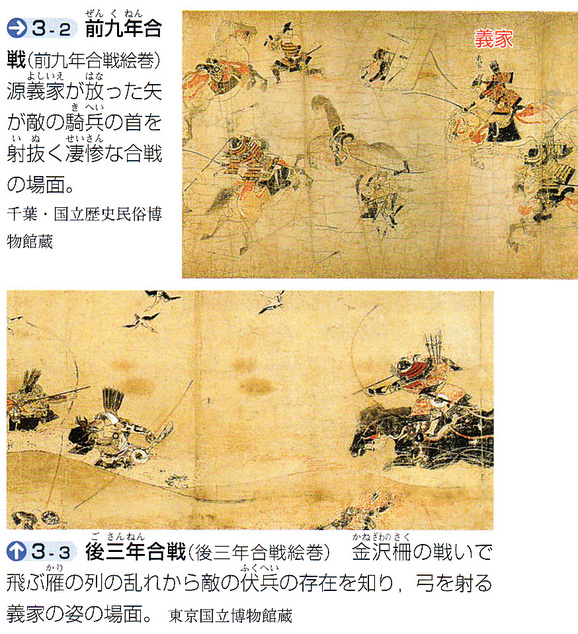 3-2 前九年合
戦(前九年合戦絵巻)
源義家が放った矢
が敵の騎兵の首を
射抜く凄惨な合戦
の場面。
千葉・国立歴史民俗博
物館蔵
義家
3-3 後三年合戦(後三年合戦絵巻) 金沢柵の戦いで
飛ぶ雁の列の乱れから敵の伏兵の存在を知り，弓を射る
義家の姿の場面。 東京国立博物館蔵